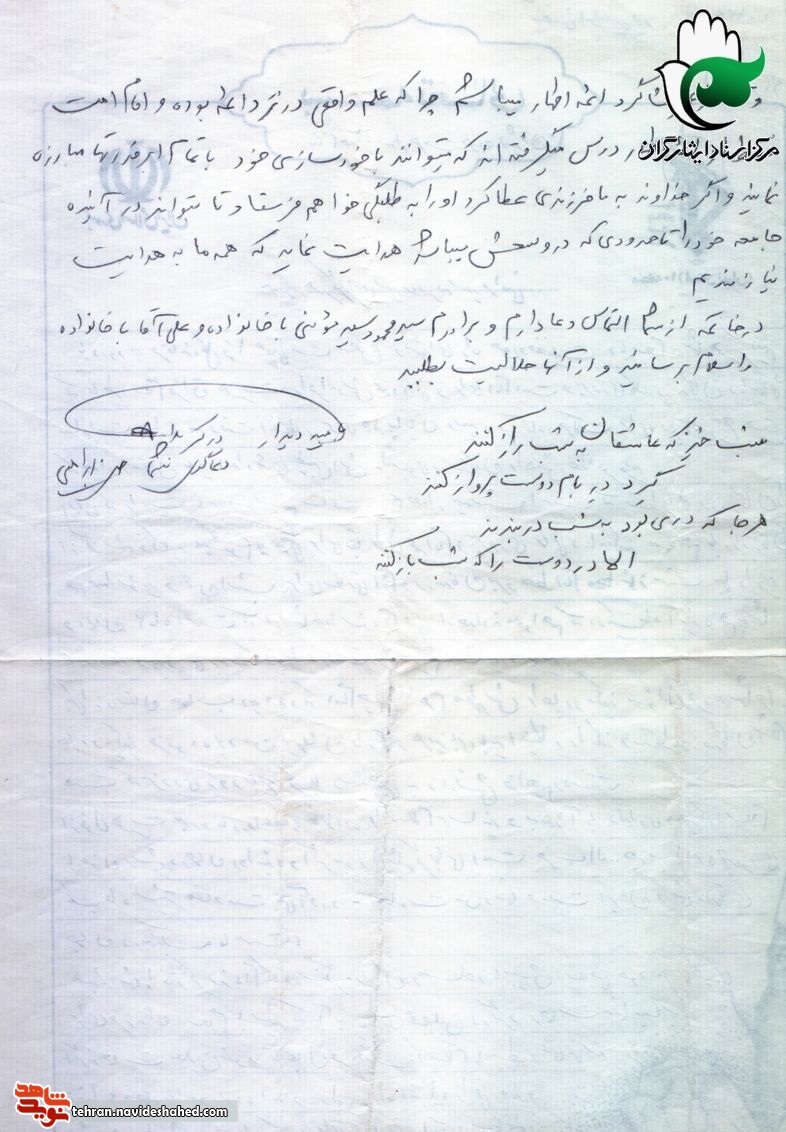 شاگرد ائمه اطهار میباشم چرا که علم واقعی در نزد ائمه بوده و امام امت
درس میگرفته اند که میتوانند با خودسازی خود با تمام ابرقدرتها مبارزه
نمایند و اگر خداوند به ما فرزندی عطا کرد او را به طلبگی خواهم فرستاد تا بتواند در آینده
جامعه خود را تا حدودی که در وسعش میباشد هدایت نماید که همه ما به هدایت
نیازمندیم
در خاتمه از شما التماس دعا دارم و برادرم سید محمود سید مؤمنی با خانواده و علی آقا با خانواده
را سلام برسانید و از آنها حلالیت بطلبید
شب خیز که عاشقان به شب راز کنند
گرد در بام دوست پرواز کنند
هر جا که دری بود به شب در بندند
الا در دوست را که شب باز کنند
بامید دیدار در کربلا
دعاگوی شما
مرکز اسناد ایثارگران
نوید شاهد
tehran.navideshahed.com